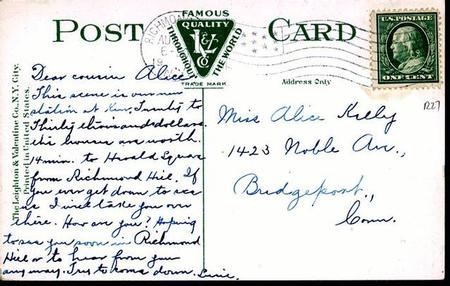 POST CARD
FAMOUS
QUALITY
THROUGHOUT THE WORLD
L&V Co
TRADE MARK
RICHMOND
U.S. POSTAGE
ONE CENT
Address Only
The Leighton & Valentine Co., N.Y. City.
Printed in United States.
1227
Dear cousin Alice
This scene is our new
station at Kew. Twenty to
Thirty thousand dollars
the houses are worth.
14 min. to Herald Square
from Richmond Hill. If
you ever get down to see
us I will take you over
there. How are you? Hoping
to see you soon in Richmond
Hill or to hear from you
anyway. Try to come down.
Miss Alice Kelly
1423 Noble Av.,
Bridgeport,
Conn.